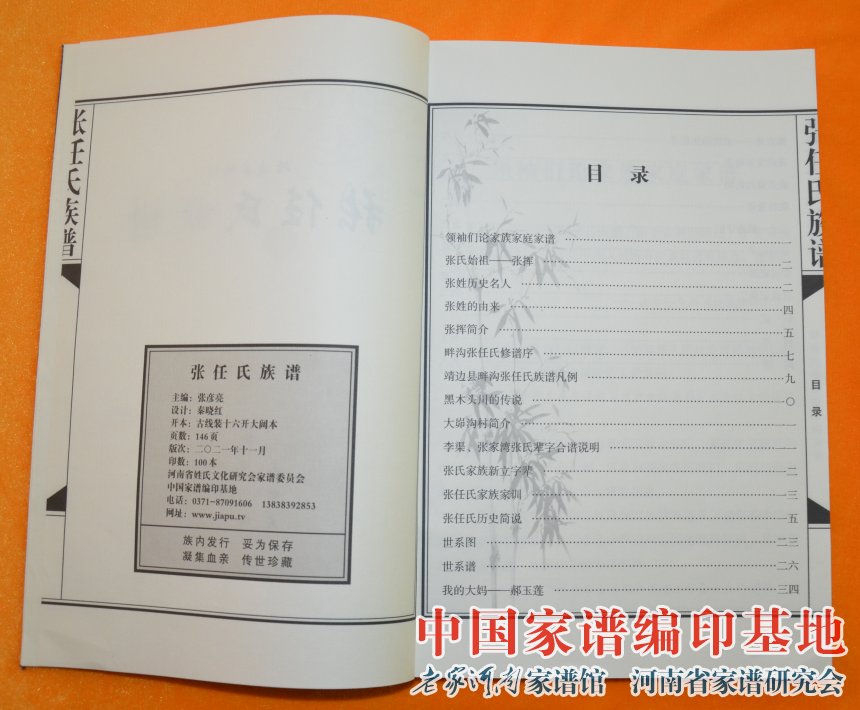 张任氏族谱
张任氏族谱
主编：张彦亮
设计：秦晓红
开本：古线装十六开大阔本
页数：146页
版次：二〇二一年十一月
印数：100本
河南省姓氏文化研究会家谱委员会
中国家谱编印基地
电话：0371-87091606 13838392853
网址：www.jiapu.tv
族内发行 妥为保存
凝集血亲 传世珍藏
张任氏族谱
目录
目 录
领袖们论家族家庭家谱 一
张氏始祖——张挥 二
张姓历史名人 二
张姓的由来 四
张挥简介 五
畔沟张任氏修谱序 七
靖边县畔沟张任氏族谱凡例 九
黑木头川的传说 〇
大峁沟村简介 一
李渠、张家湾张氏辈字合谱说明 一
张氏家族新立字辈 二
张任氏家族家训 三
张任氏历史简说 五
世系图 二三
世系谱 二六
我的大妈——郝玉莲 三四
中国家谱编印基地
老家河南家谱馆 河南省家谱研究会